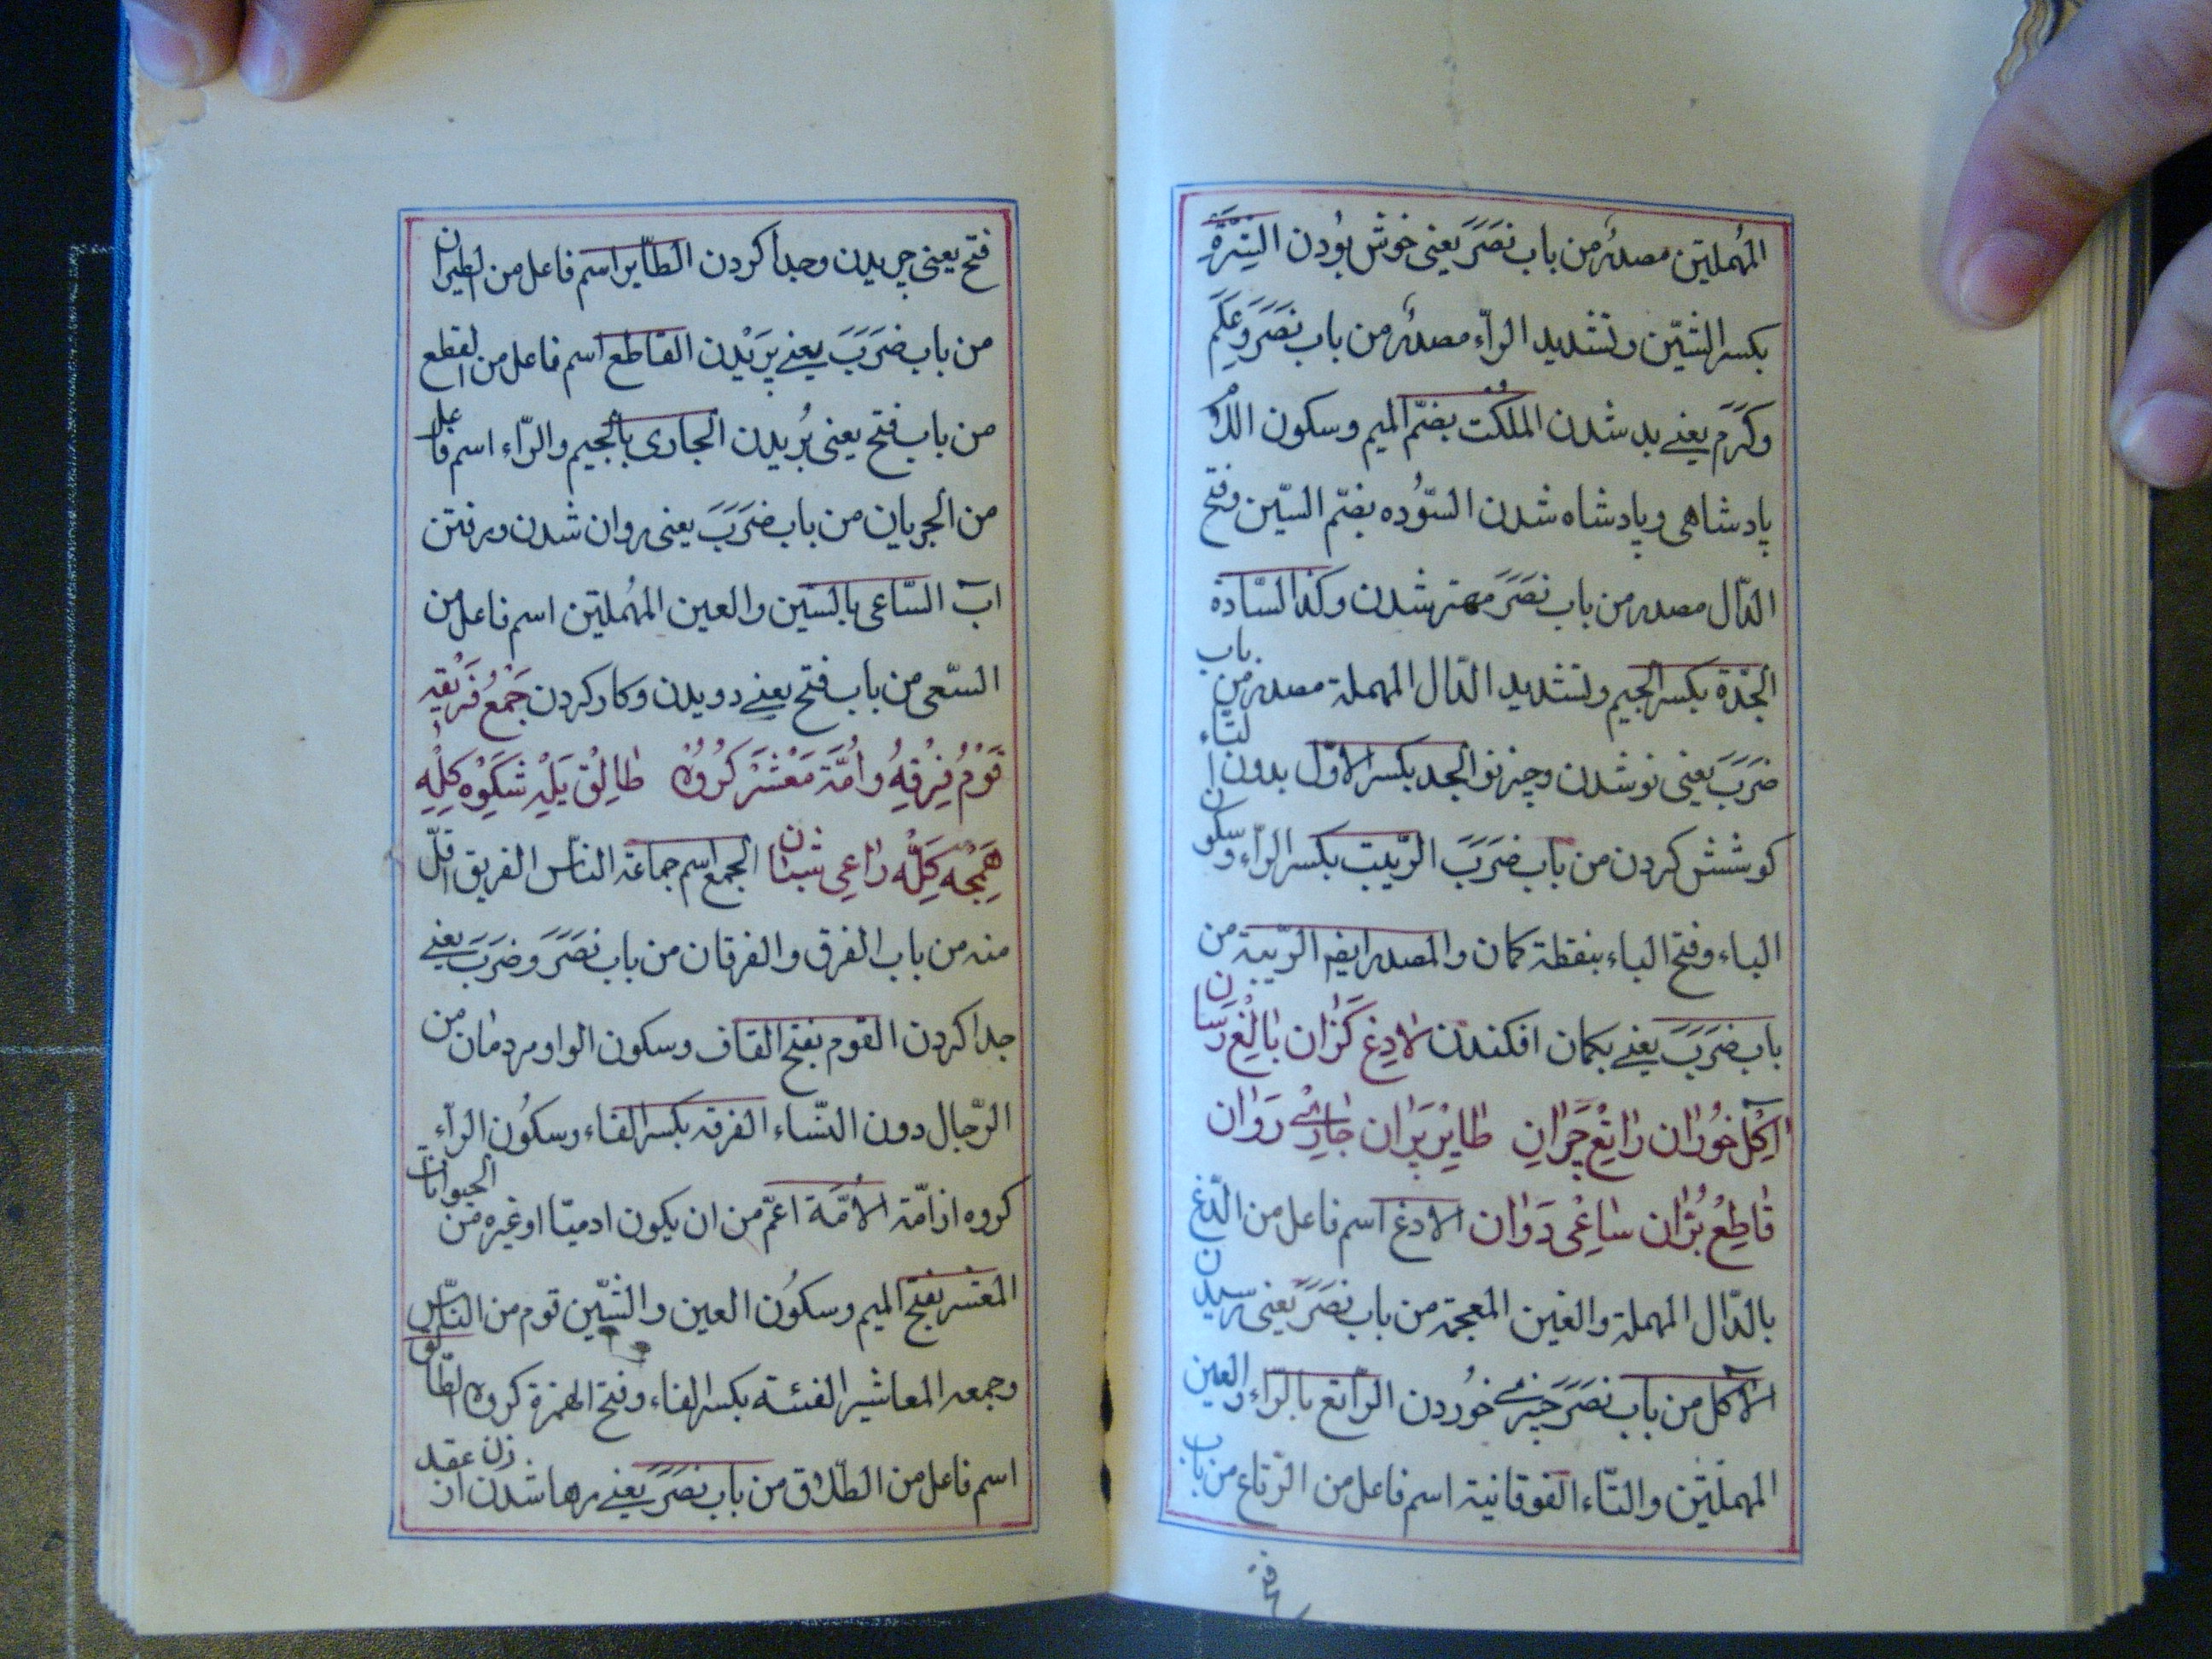 المُهملتين مصدرٌ من باب نَصَرَ يعنی خوش بوُدن الشِرَّة
بكسر الشّين وتشديد الرّاء مصدرٌ من باب نَصَرَ وعَلِمَ
وكَرُمَ یعنے بد شدن المُلكُت بضمّ الميم وسكون اللّام
پادشاهی و پادشاه شدن السّوُده بضمّ السّين وفتح
الدّال مصدر من باب نَصَرَ مهتر شدن وكذا السّادة
الجّدة بكسر الجيم وتشديد الدّال المهملة مصدر من باب
ضَرَبَ یعنی نو شدن و چیز نو الجد بكسر الاوّل بدون التاء
كوشش كردن من باب ضَرَبَ الرّيبت بكسر الرّاء وسكون
الياء وفتح الباء بنقطة كمان والمصدر ايضا الرّيبة من
باب ضَرَبَ یعنے بكمان افكندن لادِغ كَزان بالِغ رَسان
آكِل خوُران راتِعْ چَران طايِرْ پَران جارىْ رَوان
قاطِعُ بُرّان ساعِىْ دَوان الادغ اسم فاعل من الدّغ
بالدّال المهملة والغين المعجمة من باب نَصَرَ یعنی رسیدن
الآكل من باب نَصَرَ چیزے خوُردن الرّاتع بالرّاء والعين
المهملتين والتّاء الفوقانية اسم فاعل من الرّتاع من باب
فتح یعنی چریدن وجدا كردن الطّاير اسم فاعل من الطيران
من باب ضَرَبَ یعنے پرَیدن القاطع اسم فاعل من القطع
من باب فتح یعنی بُریدن الجاری بالجيم والرّاء اسم فاعل
من الجریان من باب ضَرَبَ یعنی روان شدن ورفتن
آب السّاعی بالسّين والعين المُهملتين اسم فاعل من
السّعی من باب فتح یعنے دویدن وكار كردن جَمْعُ فَریٖقُ
قَوْمُ فِرْقِهُ واُمَّة مَعْشَرْ كرُوُهْ طالِقْ یَلهْ شَكوْه كِلِهِ
هَمجْه كَلّه راعِی شبان الجمع اسم جماعة النّاس الفريق اقلّ
منه من باب الفرق والفرقان من باب نَصَرَ وضَرَبَ یعنے
جدا كردن القوم بفتح القاف وسكون الواو مردمان من
الرّجال دون النّساء الفرقه بكسر الفاء وسكوُن الرّاء
كروه از امّة الاُمَّة اعمّ من ان يكون ادميّا او غيره من الحيوانات
المعشر بفتح الميم وسكوُن العين والشّين قوم من النّاس
وجمعه المعاشير الفئة بكسر الفاء وفتح الهمزة كروه الطّالق
اسم فاعل من الطّلاق من باب نَصَرَ یعنے رها شدن زن از عقد